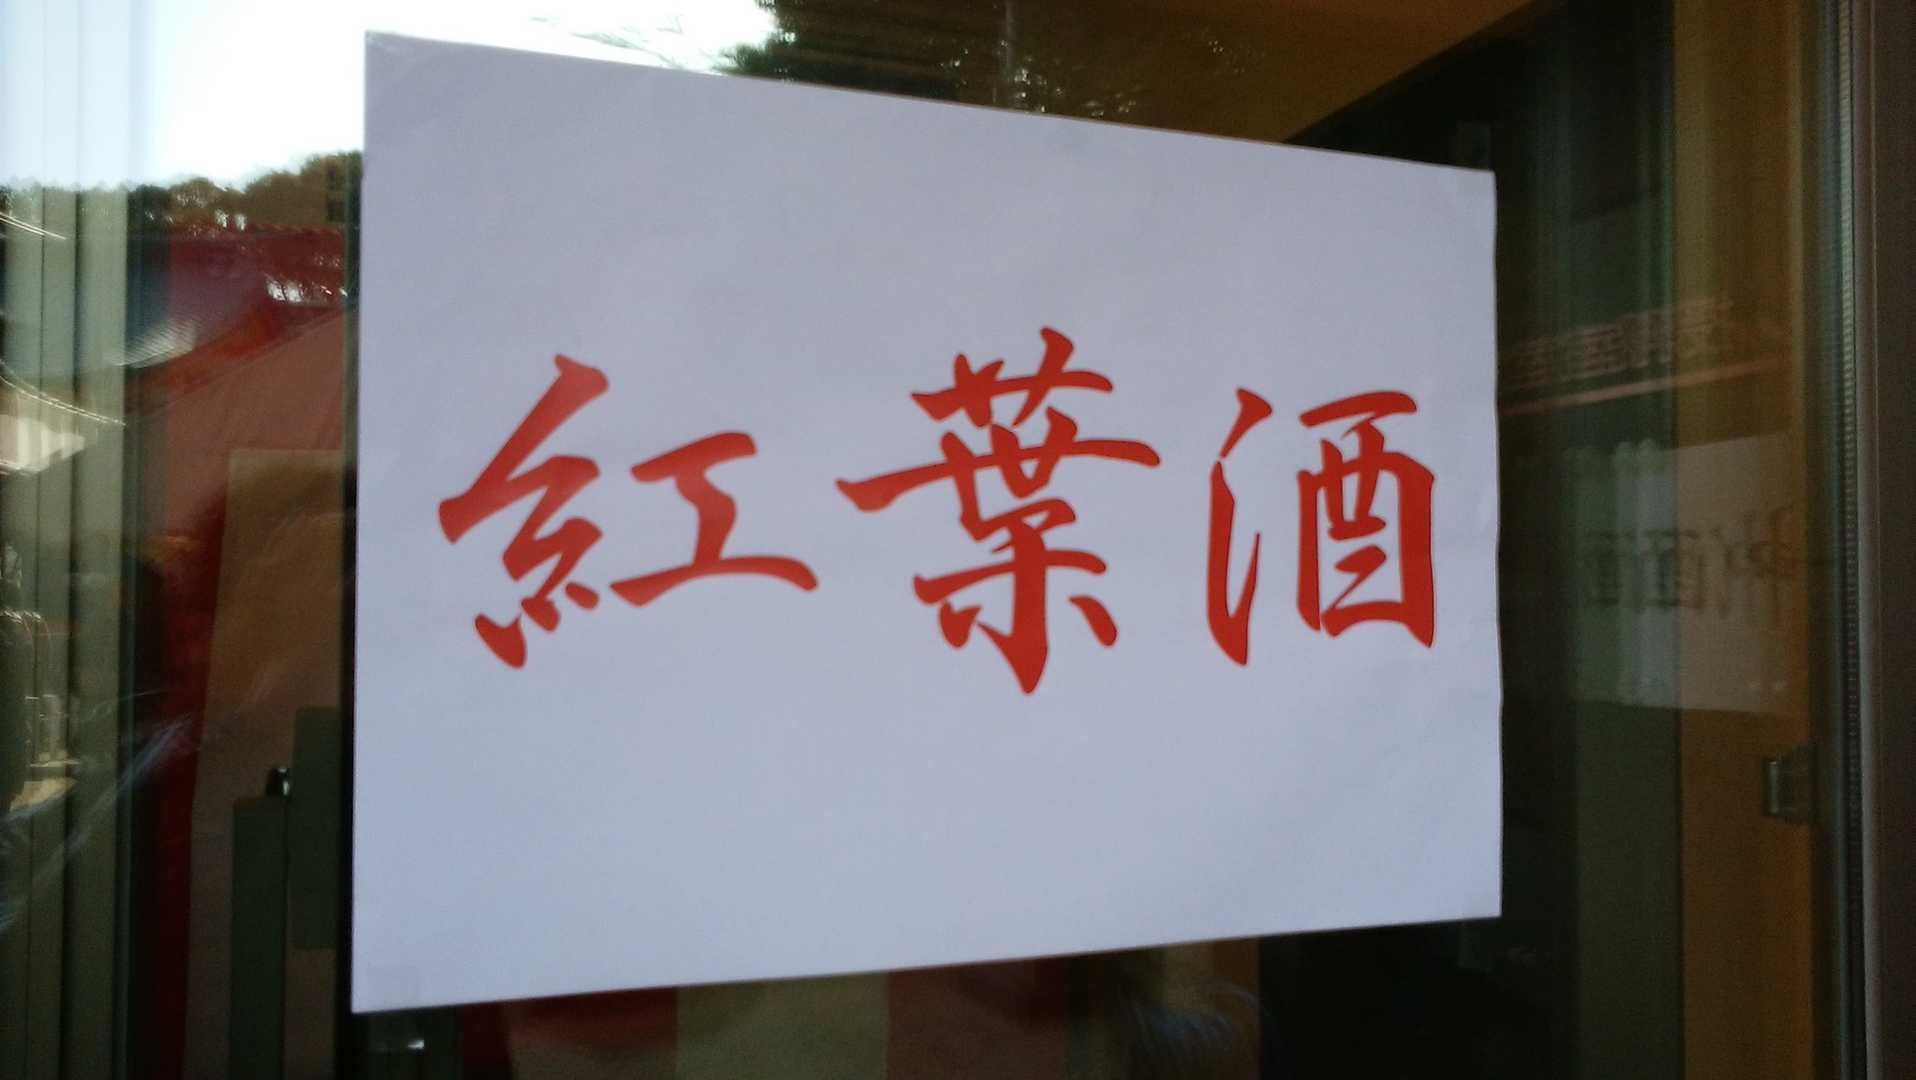 紅葉酒